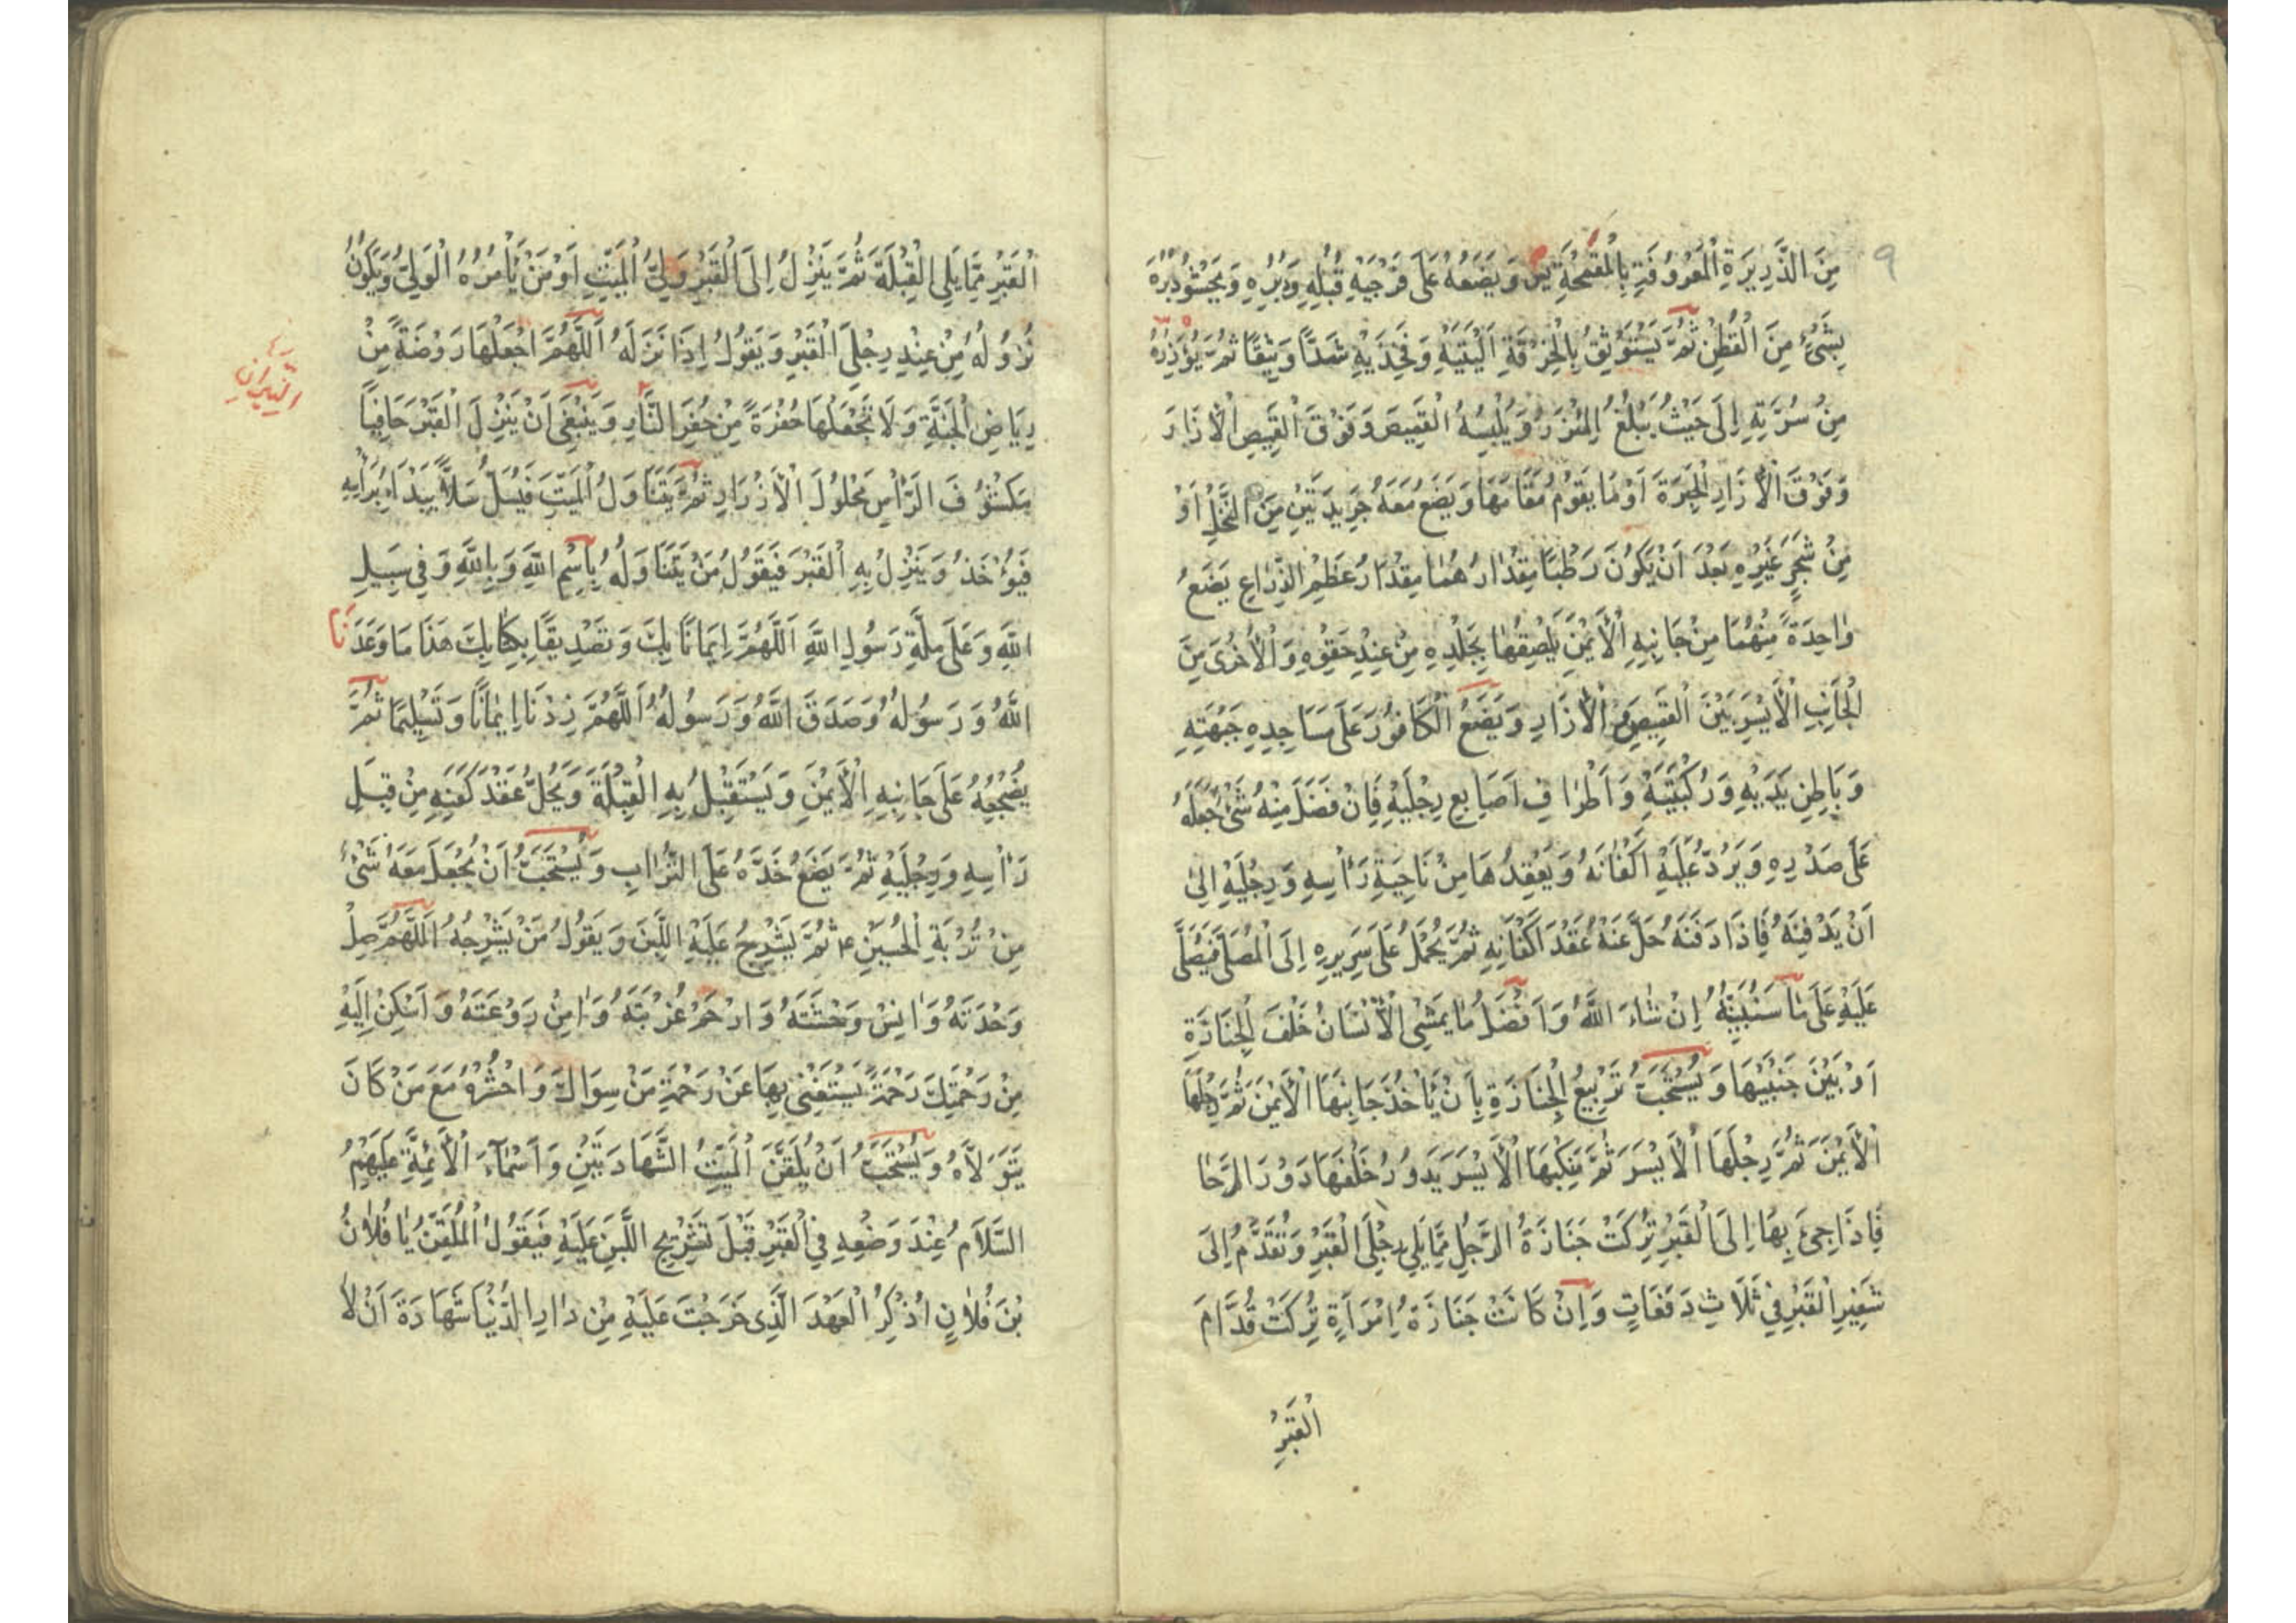 9
مِنَ الذَّرِيرَةِ الْمَعْرُوفَةِ بِالْقُمْحَةِ وَيَضَعُهُ عَلَى فَرْجَيْهِ قُبُلِهِ وَدُبُرِهِ وَيَحْشُو دُبُرَهُ
بِشَيْءٍ مِنَ الْقُطْنِ ثُمَّ يَسْتَوْثِقُ بِالْخِرْقَةِ اَلْيَتَيْهِ وَفَخِذَيْهِ شَدًّا وَثِيقًا ثُمَّ يُؤَزِّرُهُ
مِنْ سُرَّتِهِ اِلَى حَيْثُ يَبْلُغُ الْمِئْزَرُ وَيُلْبِسُهُ الْقَمِيصَ وَفَوْقَ الْقَمِيصِ الْأَزَارَ
وَفَوْقَ الْأَزَارِ الْحِبَرَةَ اَوْ مَا يَقُومُ مَقَامَهَا وَيَضَعُ مَعَهُ جَرِيدَتَيْنِ مِنَ النَّخْلِ اَوْ
مِنْ شَجَرٍ غَيْرِهِ بَعْدَ اَنْ يَكُونَ رَطْبًا مِقْدَارُهُمَا مِقْدَارُ عَظْمِ الذِّرَاعِ يَضَعُ
وَاحِدَةً مِنْهُمَا مِنْ جَانِبِهِ الْأَيْمَنِ يُلْصِقُهَا بِجِلْدِهِ مِنْ عِنْدِ حَقْوِهِ وَالْأُخْرَى مِنَ
الْجَانِبِ الْأَيْسَرِ بَيْنَ الْقَمِيصِ وَالْأَزَارِ وَيَضَعُ الْكَافُورَ عَلَى مَسَاجِدِهِ جَبْهَتِهِ
وَبَاطِنِ يَدَيْهِ وَرُكْبَتَيْهِ وَاَطْرَافِ اَصَابِعِ رِجْلَيْهِ فَاِنْ فَضَلَ مِنْهُ شَيْءٌ جَعَلَهُ
عَلَى صَدْرِهِ وَيَرُدُّ عَلَيْهِ اَكْفَانَهُ وَيَعْقِدُهَا مِنْ نَاحِيَةِ رَأْسِهِ وَرِجْلَيْهِ اِلَى
اَنْ يَدْفِنَهُ فَاِذَا دَفَنَهُ حَلَّ عَنْهُ عُقَدَ اَكْفَانِهِ ثُمَّ يُحْمَلُ عَلَى سَرِيرِهِ اِلَى الْمُصَلَّى فَيُصَلَّى
عَلَيْهِ عَلَى مَا سَنُبَيِّنُهُ اِنْ شَاءَ اللَّهُ وَاَفْضَلُ مَا يَمْشِي الْأَنْسَانُ خَلْفَ الْجَنَازَةِ
اَوْ بَيْنَ جَنْبَيْهَا وَيُسْتَحَبُّ تَرْبِيعُ الْجَنَازَةِ بِاَنْ يَأْخُذَ جَانِبَهَا الْأَيْمَنَ ثُمَّ رِجْلَهَا
الْأَيْمَنَ ثُمَّ رِجْلَهَا الْأَيْسَرَ ثُمَّ مَنْكِبَهَا الْأَيْسَرَ يَدُورُ خَلْفَهَا دَوْرَ الرَّحَا
فَاِذَا جِيءَ بِهَا اِلَى الْقَبْرِ تُرِكَتْ جَنَازَةُ الرَّجُلِ مِمَّا يَلِي رِجْلَيِ الْقَبْرِ وَتُقَدَّمُ اِلَى
شَفِيرِ الْقَبْرِ فِي ثَلَاثِ دَفَعَاتٍ وَاِنْ كَانَتْ جَنَازَةَ اِمْرَأَةٍ تُرِكَتْ قُدَّامَ
الْقَبْرِ
الْقَبْرِ مِمَّا يَلِي الْقِبْلَةَ ثُمَّ يَنْزِلُ اِلَى الْقَبْرِ وَلِيُّ الْمَيِّتِ اَوْ مَنْ يَأْمُرُهُ الْوَلِيُّ وَيَكُونُ
نُزُولُهُ مِنْ عِنْدِ رِجْلَيِ الْقَبْرِ وَيَقُولُ اِذَا نَزَلَهُ اَللَّهُمَّ اجْعَلْهَا رَوْضَةً مِنْ
رِيَاضِ الْجَنَّةِ وَلَا تَجْعَلْهَا حُفْرَةً مِنْ حُفَرِ النَّارِ وَيَنْبَغِي اَنْ يَنْزِلَ الْقَبْرَ حَافِيًا
النِّيرَانِ
مَكْشُوفَ الرَّأْسِ مَحْلُولَ الْأَزْرَارِ ثُمَّ يَتَنَاوَلُ الْمَيِّتَ فَيُسَلُّ سَلًّا يَبْدَاُ بِرَأْسِهِ
فَيُؤْخَذُ وَيَنْزِلُ بِهِ الْقَبْرَ فَيَقُولُ مَنْ يَتَنَاوَلُهُ بِاسْمِ اللَّهِ وَبِاللَّهِ وَفِي سَبِيلِ
اللَّهِ وَعَلَى مِلَّةِ رَسُولِ اللَّهِ اَللَّهُمَّ اِيمَانًا بِكَ وَتَصْدِيقًا بِكِتَابِكَ هَذَا مَا وَعَدَنَا
اللَّهُ وَرَسُولُهُ وَصَدَقَ اللَّهُ وَرَسُولُهُ اَللَّهُمَّ زِدْنَا اِيمَانًا وَتَسْلِيمًا ثُمَّ
يُضْجِعُهُ عَلَى جَانِبِهِ الْأَيْمَنِ وَيَسْتَقْبِلُ بِهِ الْقِبْلَةَ وَيَحُلُّ عُقَدَ كَفَنِهِ مِنْ قِبَلِ
رَأْسِهِ وَرِجْلَيْهِ ثُمَّ يَضَعُ خَدَّهُ عَلَى التُّرَابِ وَيُسْتَحَبُّ اَنْ يُجْعَلَ مَعَهُ شَيْءٌ
مِنْ تُرْبَةِ الْحُسَيْنِ ع ثُمَّ يُشَرِّجُ عَلَيْهِ اللَّبِنَ وَيَقُولُ مَنْ يُشَرِّجُهُ اَللَّهُمَّ صِلْ
وَحْدَتَهُ وَانِسْ وَحْشَتَهُ وَارْحَمْ غُرْبَتَهُ وَامِنْ رَوْعَتَهُ وَاَسْكِنْ اِلَيْهِ
مِنْ رَحْمَتِكَ رَحْمَةً يَسْتَغْنِي بِهَا عَنْ رَحْمَةِ مَنْ سِوَاكَ وَاحْشُرْهُ مَعَ مَنْ كَانَ
يَتَوَلَّاهُ وَيُسْتَحَبُّ اَنْ يُلَقَّنَ الْمَيِّتُ الشَّهَادَتَيْنِ وَاَسْمَآءَ الْأَئِمَّةِ عَلَيْهِمُ
السَّلَامُ عِنْدَ وَضْعِهِ فِي الْقَبْرِ قَبْلَ تَشْرِيجِ اللَّبِنِ عَلَيْهِ فَيَقُولُ الْمُلَقِّنُ يَا فُلَانُ
بْنَ فُلَانٍ اذْكُرِ الْعَهْدَ الَّذِي خَرَجْتَ عَلَيْهِ مِنْ دَارِ الدُّنْيَا شَهَادَةَ اَنْ لَا